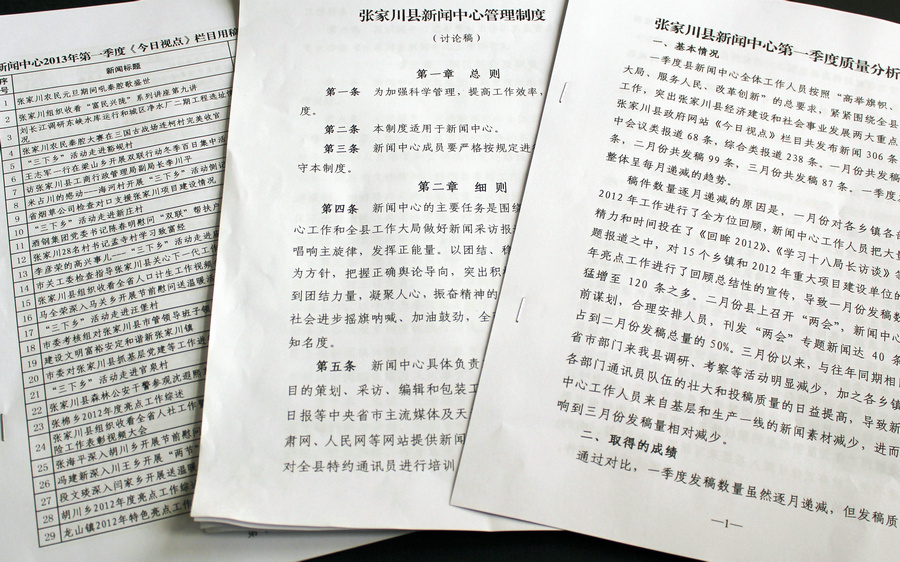 新闻中心2013年第一季度《今日视点》栏目用稿
序号
新闻标题
1 张家川农民元旦期间吼秦腔歌盛世
2 张家川组织收看“富民兴陇”系列讲座第九讲
3 刘长江调研东峡水库运行和城区净水厂二期工程选址
况
4 张家川农民秦腔大赛在三国古战场连柯村完美收官
5 “三下乡”活动走进豁岘村
6 王志军一行在梁山乡开展双联行动冬季百日集中活
7 访张家川县工商行政管理局副局长李川平
8 米占川的感动——海河村开展“三下乡”活动侧记
9 省烟草公司检查对口支援张家川项目建设情况
10 “三下乡”活动走进新庄村
11 酒钢集团党委书记陈春明慰问“双联”帮扶户
12 张家川28名村书记孟寺村学习致富经
13 李彦荣的高兴事儿——“三下乡”活动走进
14 市关工委检查指导张家川县关心下一代工作
15 张家川县组织收看全省人口计生工作视频
16 马全荣深入马关乡开展节前慰问送温暖
17 “三下乡”活动走进汪堡村
18 市委考核组对张家川县市管领导班子领
19 建设文明富裕安定和谐新张家川镇
20 市委对张家川县抓基层党建等工作进
21 “三下乡”活动走进官泉村
22 张家川县森林公安干警参观沈遐熙
23 张棉乡2012年度亮点工作综述
24 张家川县组织收看全省人社工作暨
险工作表彰视频大会
25 张海平深入胡川乡开展节前慰问
26 冯建新深入川王乡开展“两节”
27 段文瑛深入闫家乡开展送温暖
28 胡川乡2012年度亮点工作综
29 龙山镇2012年特色亮点工作
张家川县新闻中心管理制度
（讨论稿）
第一章 总 则
第一条 为加强科学管理，提高工作效率，
度。
第二条 本制度适用于新闻中心。
第三条 新闻中心成员要严格按规定进
守本制度。
第二章 细 则
第四条 新闻中心的主要任务是围绕
心工作和全县工作大局做好新闻采访报
唱响主旋律，发挥正能量。以团结、稳
为方针，把握正确舆论导向，突出积
到团结力量，凝聚人心，振奋精神的
社会进步摇旗呐喊、加油鼓劲，全
知名度。
第五条 新闻中心具体负责
目的策划、采访、编辑和包装工
日报等中央省市主流媒体及天
肃网、人民网等网站提供新闻
对全县特约通讯员进行培训
张家川县新闻中心第一季度质量分析
一、基本情况
一季度县新闻中心全体工作人员按照“高举旗帜、
大局、服务人民、改革创新”的总要求，紧紧围绕全县
工作，突出张家川县经济建设和社会事业发展两大重点
张家川县政府网站《今日视点》栏目共发布新闻306条
中会议类报道68条，综合类报道238条。一月份共发稿
条，二月份共发稿99条，三月份共发稿87条。一季度
整体呈每月递减的趋势。
稿件数量逐月递减的原因是，一月份对各乡镇各部
2012年工作进行了全方位回顾，新闻中心工作人员把大量
精力和时间投在了《回眸2012》、《学习十八局长访谈》等
题报道之中，对15个乡镇和2012年重大项目建设单位的
年亮点工作进行了回顾总结性的宣传，导致一月份发稿数
猛增至120条之多。二月份县上召开“两会”，新闻中心
前谋划，合理安排人员，刊发“两会”专题新闻达40条
占到二月份发稿总量的50%。三月份以来，与往年同期相
省市部门来我县调研、考察等活动明显减少，加之各乡镇
各部门通讯员队伍的壮大和投稿质量的日益提高，导致新
中心工作人员来自基层和生产一线的新闻素材减少，进而
响到三月份发稿量相对减少。
二、取得的成绩
通过对比，一季度发稿数量虽然逐月递减，但发稿质
—1—